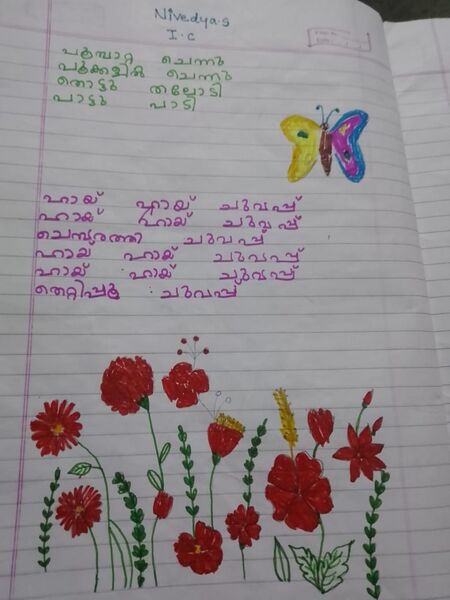 Nivedya.s
I.c
പൂമ്പാറ്റ ചെന്നു
പൂക്കളിൽ ചെന്നു
തൊട്ടു തലോടി
പാട്ടു പാടി
ഹായ് ഹായ് ചുവപ്പ്
ഹായ് ഹായ് ചുവപ്പ്
ചെമ്പരത്തി ചുവപ്പ്
ഹായ് ഹായ് ചുവപ്പ്
ഹായ് ഹായ് ചുവപ്പ്
തെറ്റിപ്പൂ ചുവപ്പ്